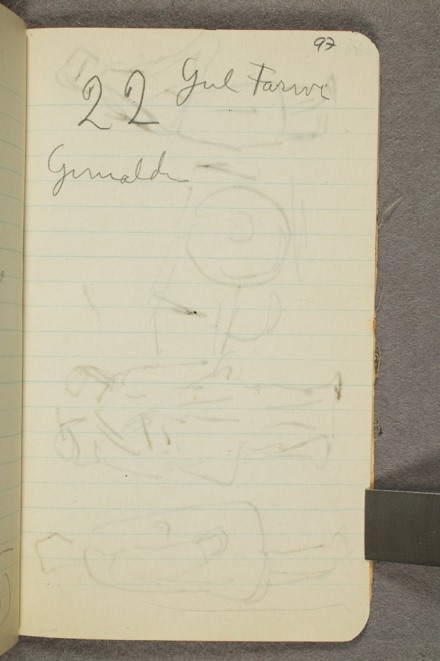 97
22 Gul Farve
Grimaldi